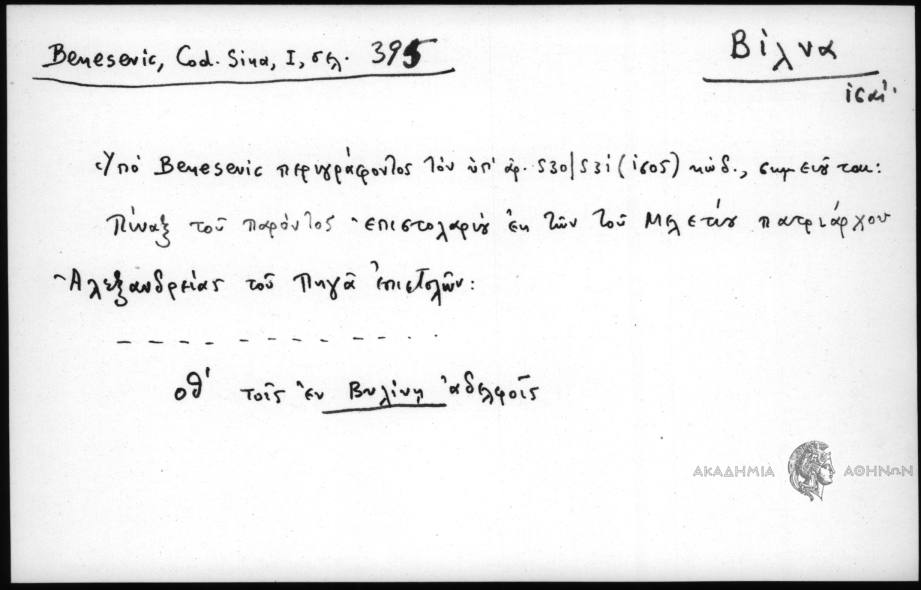 Benesevic, Cod. Sina, I, σελ. 395
Βίλνα
ιςαί.
Ὑπὸ Benesevic περιγράφοντος τὸν ὑπ' ἀρ. 530/531 (1605) κώδ., σημειοῦται:
Πίναξ τοῦ παρόντος ἐπιστολαρίου ἐκ τῶν τοῦ Μελετίου πατριάρχου
Ἀλεξανδρείας τοῦ Πηγᾶ ἐπιστολῶν:
οθ' τοῖς ἐν Βυλίνῃ ἀδελφοῖς
ΑΚΑΔΗΜΙΑ ΑΘΗΝΩΝ